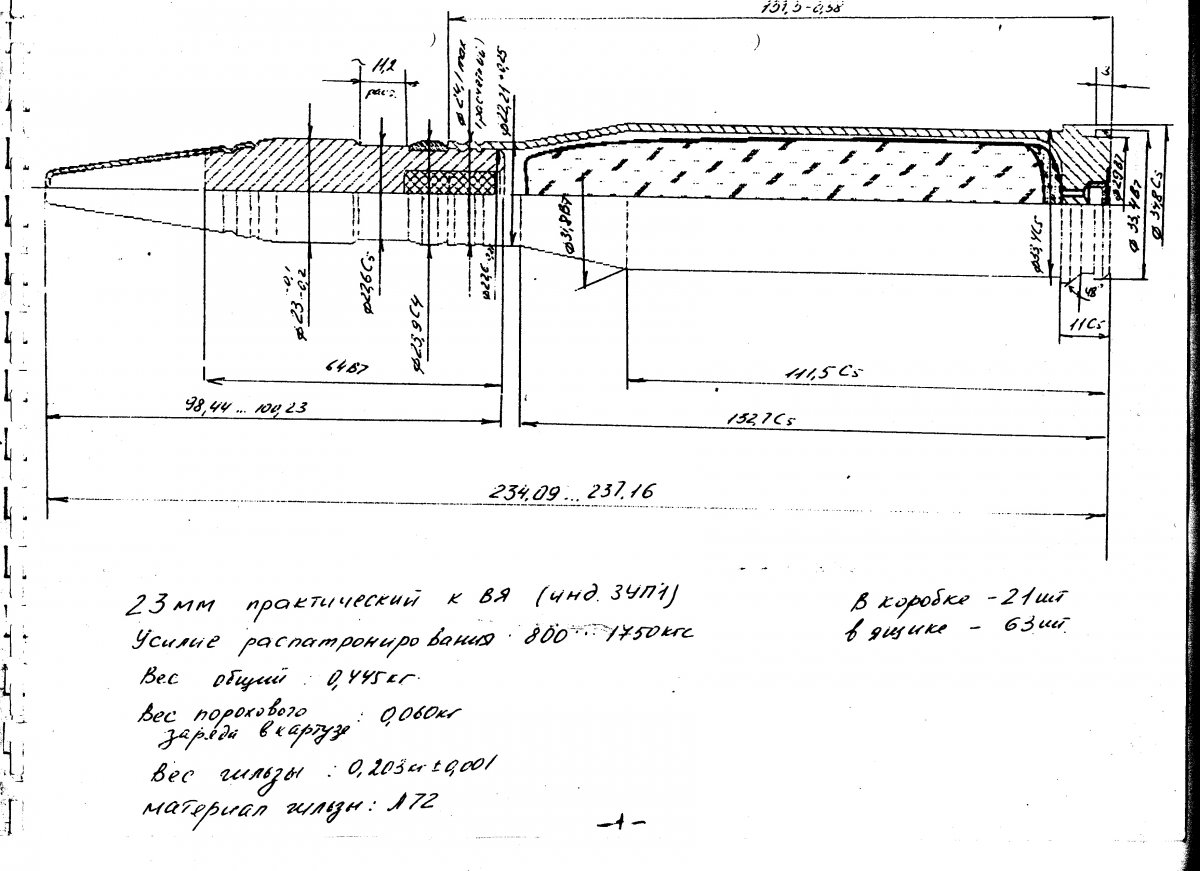 151,5-0,38
11,2
расч.
ф 24,1 max
(расчетный)
ф22,21+0,25
3
ф29В7
ф 33,4В7
ф 34,8 С5
ф31,8В7
ф33,4С5
ф23-0,1-0,2
ф22,6С5
ф23,9С4
ф22,6
45°
11С5
64В7
111,5 С5
98,44 ... 100,23
152,7С5
234.09 ... 237.16
23мм практический к ВЯ (инд. ЗУП1)
Усилие распатронирования 800 ... 1750кгс
Вес общий : 0,445кг
Вес порохового
заряда в картузе : 0,060кг
Вес гильзы : 0,203кг±0,001
материал гильзы : Л72
В коробке - 21шт
в ящике - 63шт.
-1-